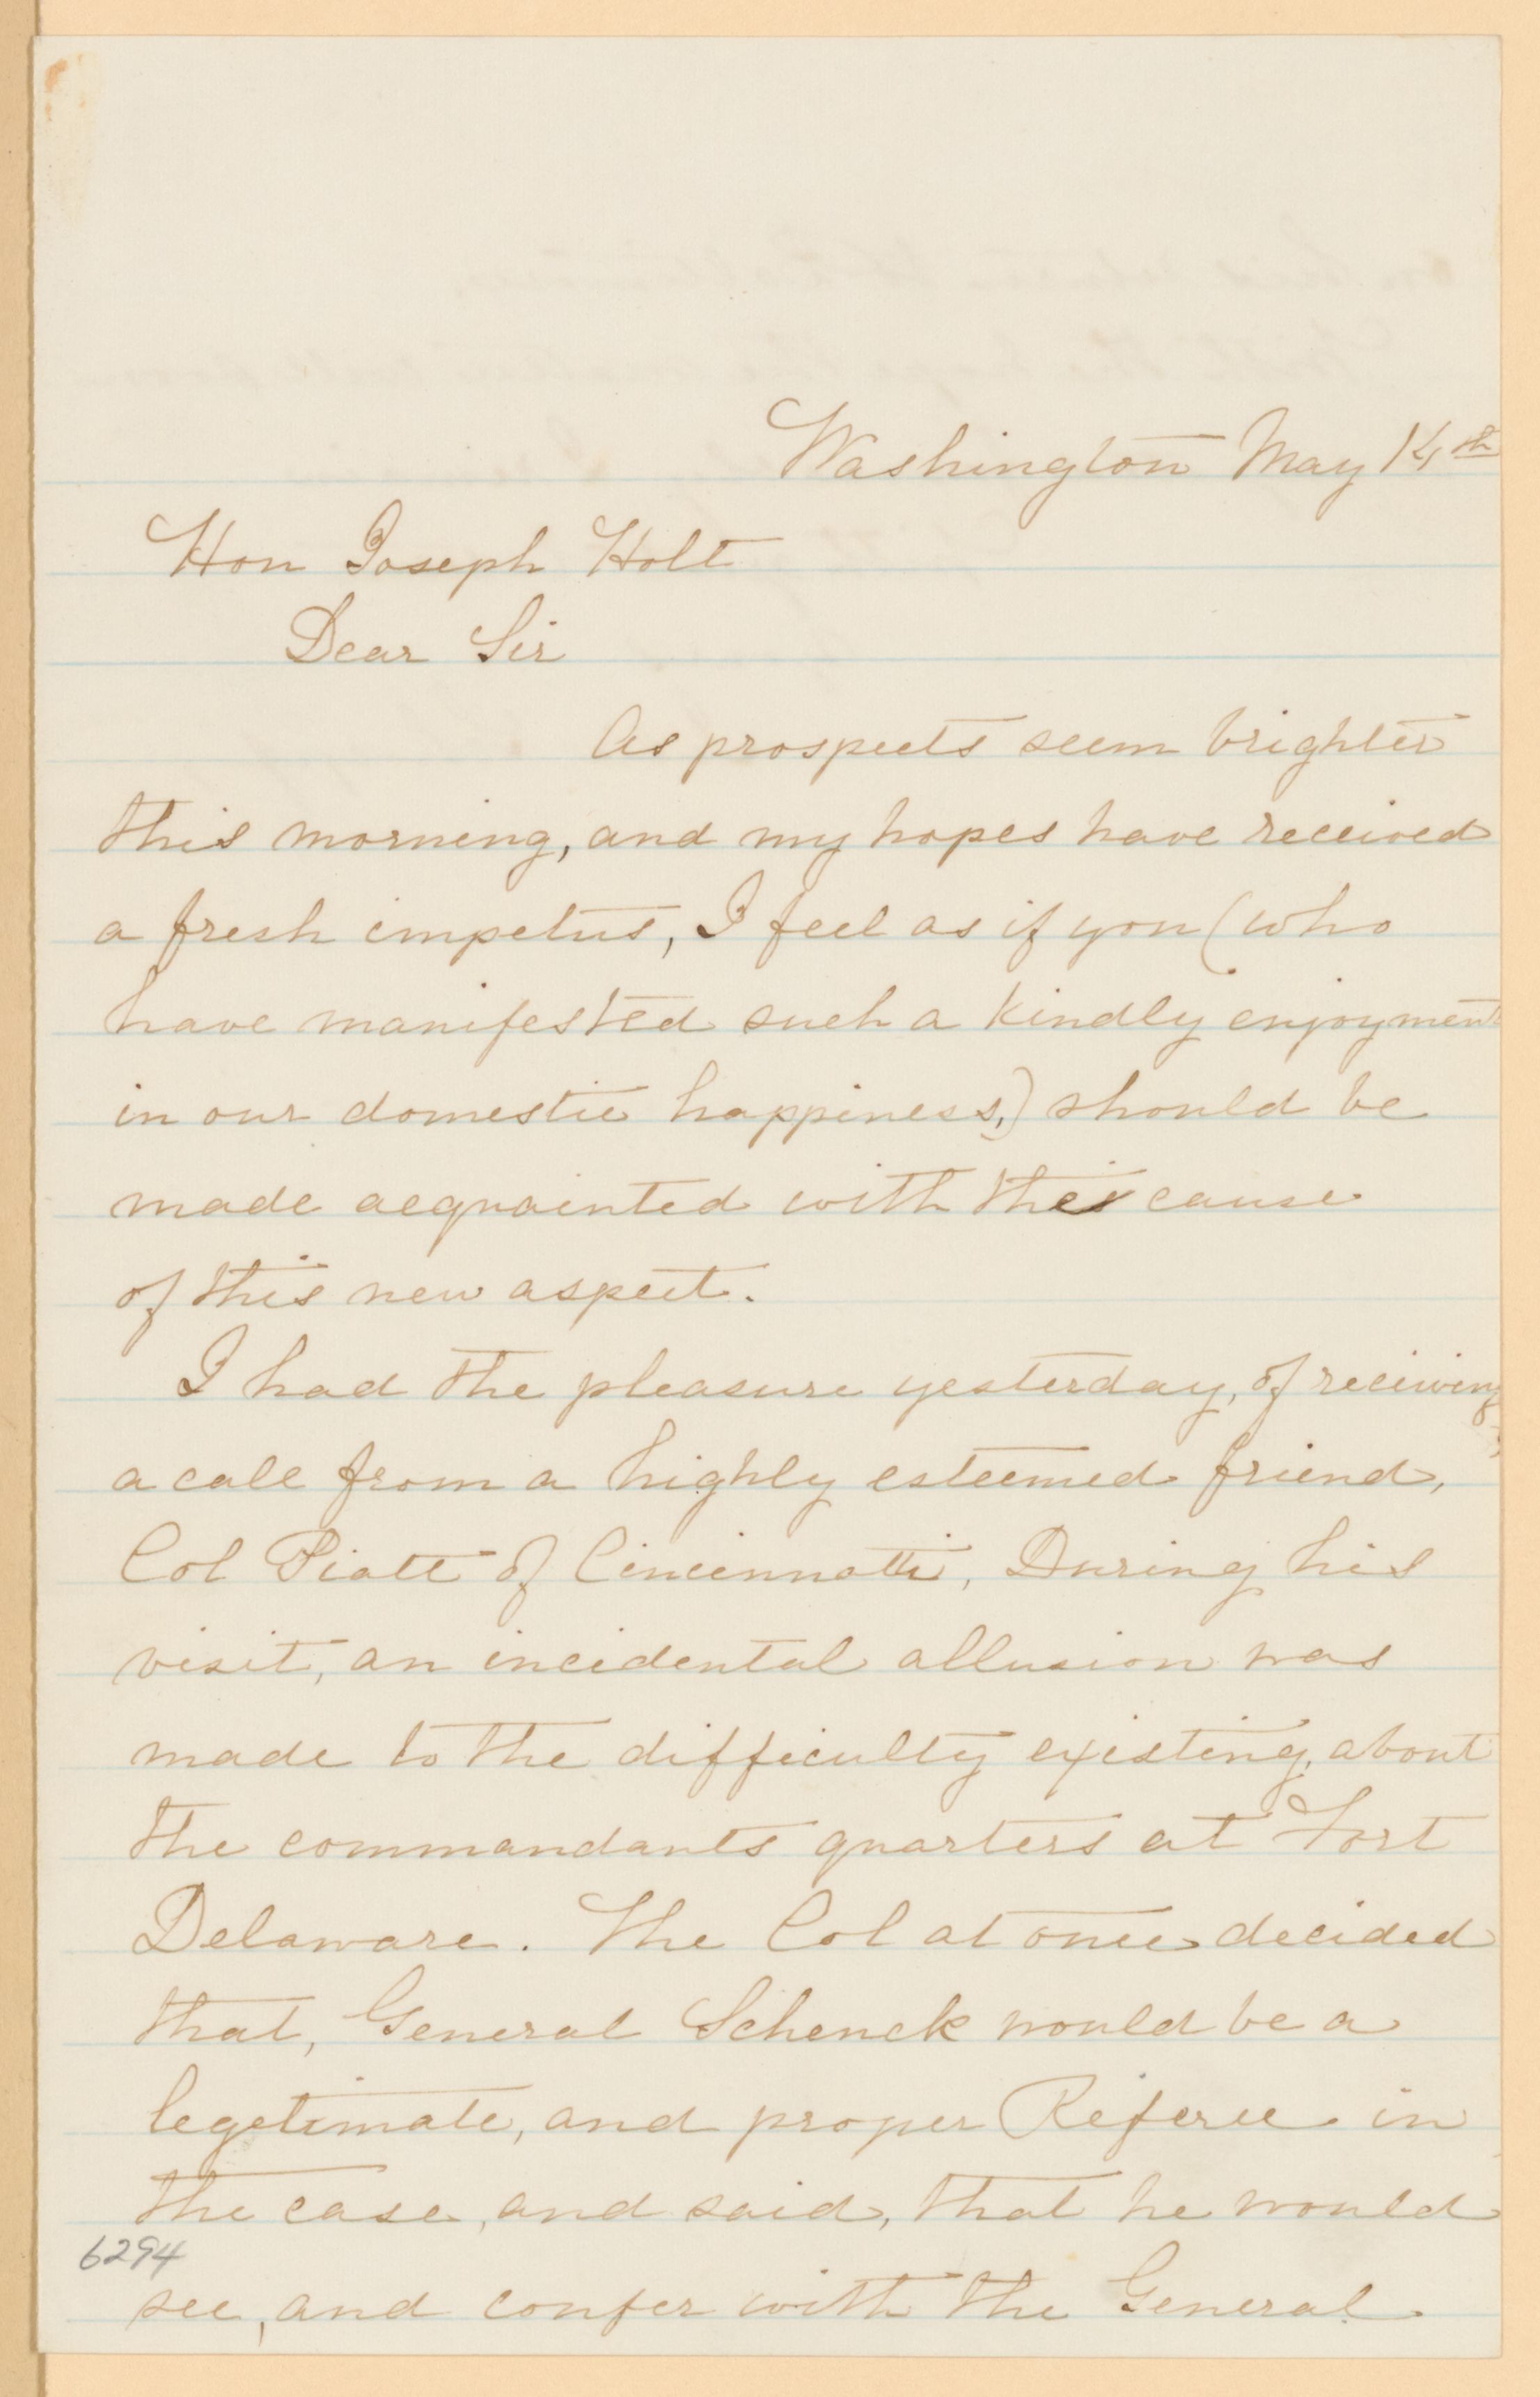 Washington May 14th
Hon Joseph Holt
Dear Sir
As prospects seem brighter
this morning, and my hopes have received
a fresh impetus, I feel as if you (who
have manifested such a kindly enjoyment
in our domestic happiness,) should be
made acquainted with the cause
of this new aspect.
I had the pleasure yesterday, of receiving
a call from a highly esteemed friend,
Col Piatt of Cincinnatti, During his
visit, an incidental allusion was
made to the difficulty existing, about
the commandants quarters at Fort
Delaware. The Col at once decided
that, General Schenck would be a
legetimate, and proper Referee in
the case, and said, that he would
6294
see, and confer with the General